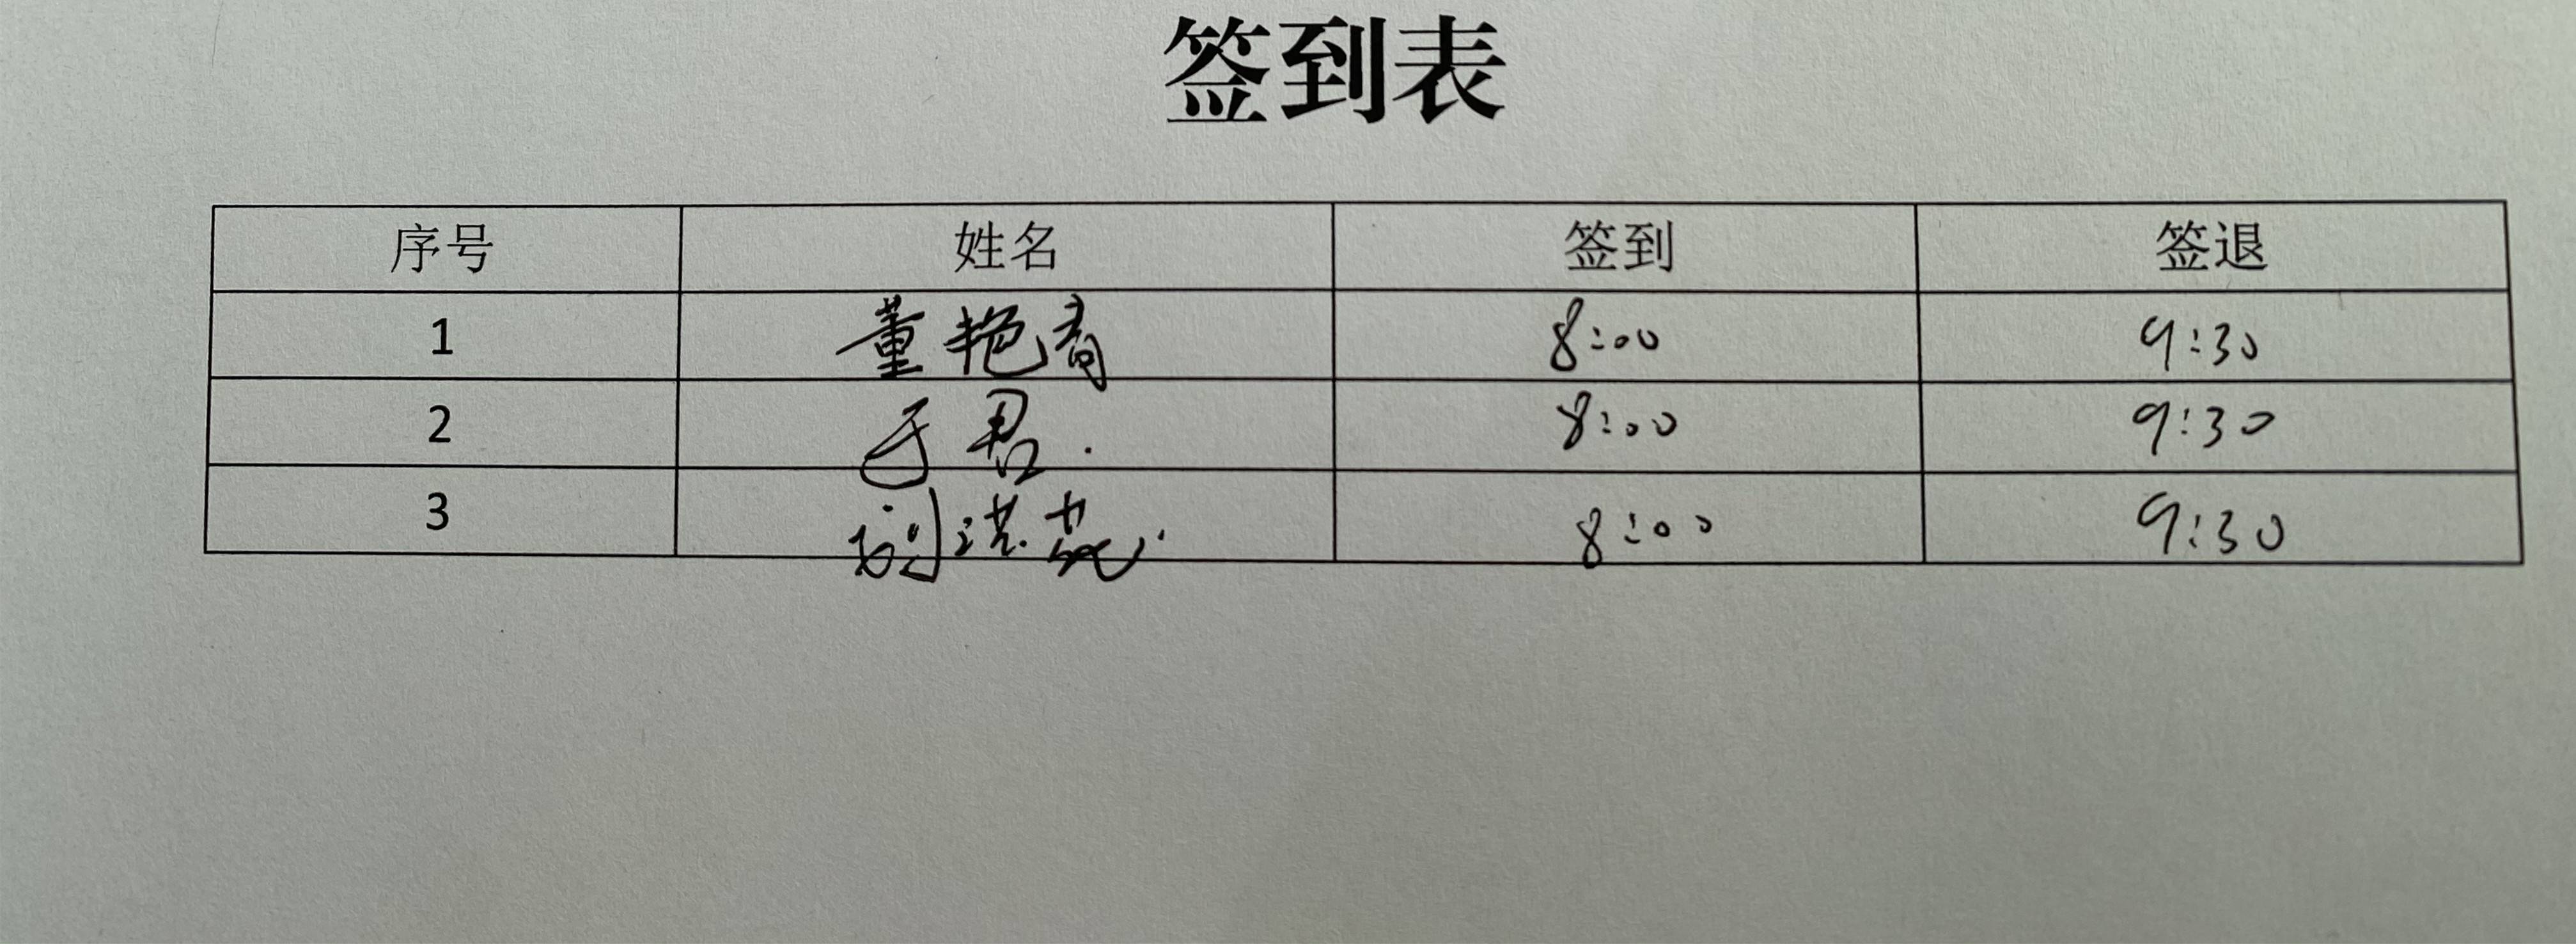 签到表
序号 姓名 签到 签退
1 董艳青 8:00 9:30
2 于君. 8:00 9:30
3 刘洪 8:00 9:30